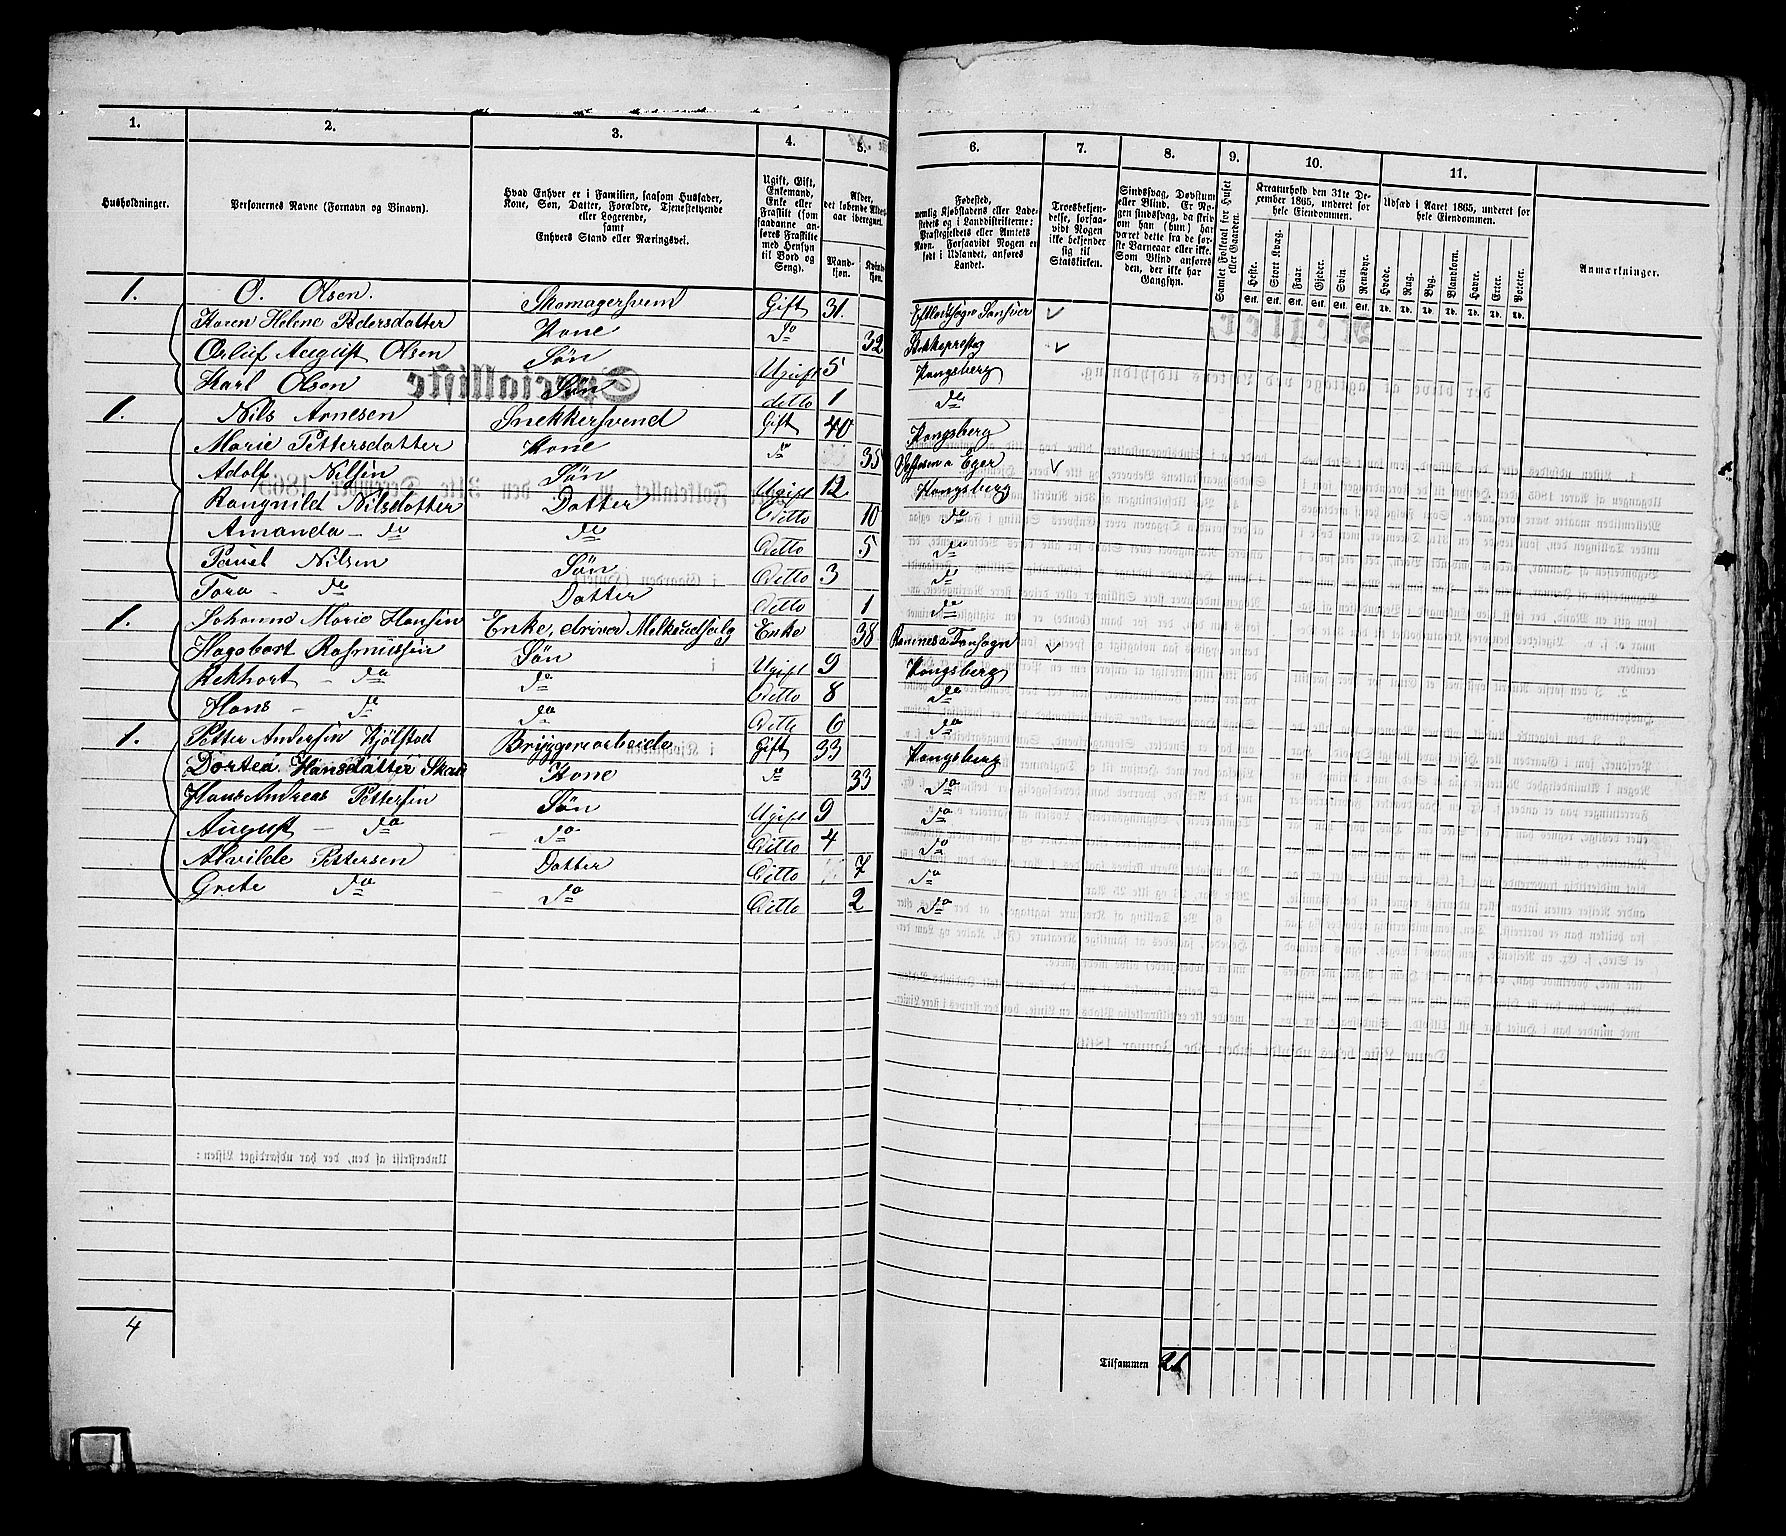 1. 2. 3. 4. 5. 6. 7. 8. 9. 10. 11.
Husholdninger.
Personernes Navne (Fornavn og Tilnavn).
Hvad Enhver er i Familien, saasom Husfader,
Kone, Søn, Datter, Forældre, Tjenestetyende
eller Logerende,
samt
Enhvers Stand eller Næringsvei.
Ugift, Gift,
Enkemand,
Enke eller
Fraskilt (som
saadanne an-
føres Fraskilte
med Hensyn
til Bord og
Seng).
Alder,
det løbende Alders-
aar iberegnet.
Mand-
kjøn.
Kvinde-
kjøn.
Fødested,
nemlig Kjøbstadens eller Lade-
stedets og i Landdistrikterne:
Præstegjeldets eller Amtets
Navn. Forsaavidt Nogen er
født i Udlandet, anføres
Landet.
Troesbekjen-
delse, forsaa-
vidt Nogen
ikke bekjender
sig til
Statskirken.
Sindssvag, Døvstum
eller Blind. Er No-
gen sindssvag, da skriv
om han (hun) har
været dette fra de før-
ste Barneaar eller ikke.
Som Blind anføres
den, der ikke har
Gangsyn.
Samlet Folketal for Huset
eller Gaarden.
Kreaturhold den 31te De-
cember 1865, underet for
hele Eiendommen.
Heste. Stort Kvæg. Faar. Gjeder. Svin Rensdyr.
Stk. Stk. Stk. Stk. Stk. Stk.
Udsæd i Aaret 1865, underet for
hele Eiendommen.
Hvede. Rug. Byg. Blandkorn. Havre. Erter. Poteter.
Td. Td. Td. Td. Td. Td. Td.
Anmærkninger.
1. O. Olsen. Skomagersvend Gift 31.
Karen Helene Pedersdatter Kone do 32
Oluf August Olsen Søn Ugift 5 Kongsberg
Karl Olsen Søn ditto 1 do
1. Nils Arnesen Snekkersvend Gift 40 Kongsberg
Marie Pettersdatter Kone do 35 Eger
Adolf Nilsen Søn Ugift 12 Kongsberg
Rangnild Nilsdatter Datter Ditto 10 do
Amanda - do do Ditto 5 do
Pauel Nilsen Søn Ditto 3 do
Tora - do Datter Ditto 1 do
1. Johanne Marie Hansen Enke, driver Melkeudsalg Enke 38
Hagsbart Rasmussen Søn Ugift 9 Kongsberg
Rekhart - do do Ditto 8 do
Hans - do do Ditto 6 do
1. Petter Andersen Kjølstad Bryggeriarbeide Gift 33 Kongsberg
Dortea Hansdatter Kone do 33 do
Hans Andreas Pettersen Søn Ugift 9 do
August - do - do Ditto 4 do
Alvilde Pettersen Datter Ditto 7 do
Grete do - do Ditto 2 do
4
Tilsammen 21